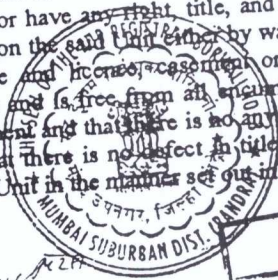 or have any right, title, and
on the said Unit either by wa
e and licence, easement or
and is free from all encum
ent and that there is no any
at there is no defect in title
Unit in the manner set out in
MUMBAI SUBURBAN DIST. BANDRA
उपनगर, जिल्हा